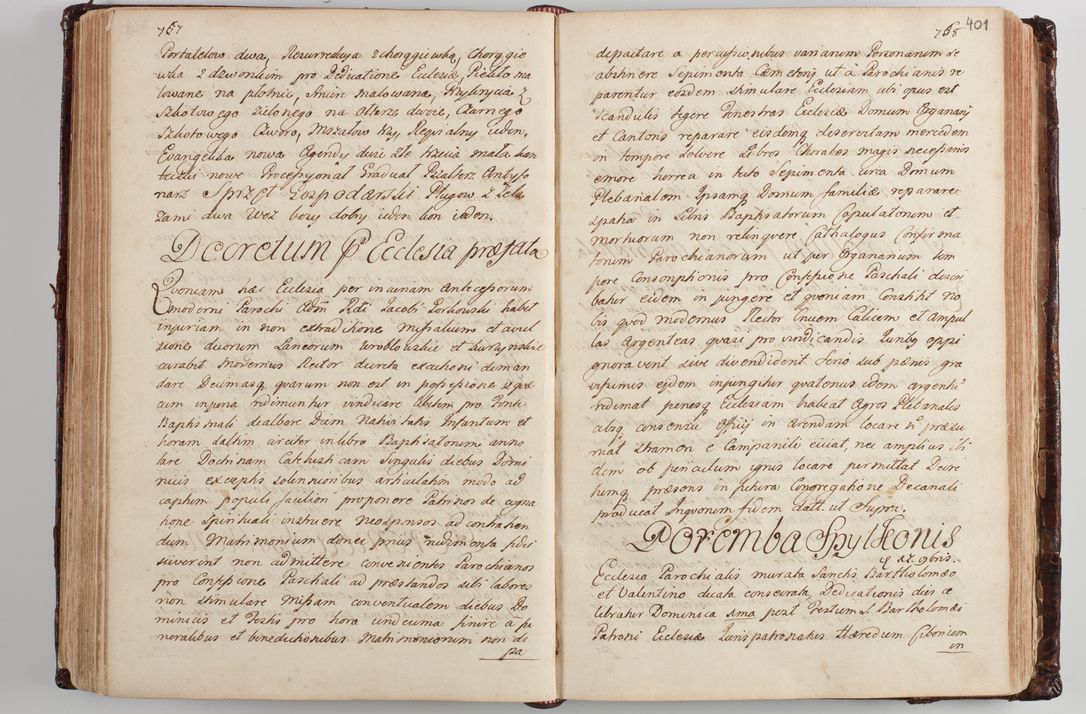 767
Portatelow dwa, Rezurrekcya z chorągiewką, Chorągie
wka z dzwonkiem pro Dedicatione Ecclesiæ, Piekło ma
lowane na płotnie, Antre malowana,
Szkotowego zielonego na Ołtarz dwoie, Czarnego
Szkotowego Czworo, Mszałow trzy, Regialny ieden,
Evangelika nowa Agendy dwie złe trzecia mała, kan
teczki nowe Processyonał Graduał Psałterz Antyfo
narz Sprzęt Gospodarski Pługow z Żela
zami dwa Woz bosy dobry ieden kon ieden.
Decretum p Ecclesia præfata
Quoniam hæc Ecclesia per incuriam Antecessorum
moderni Parochi Adm Rdi Jacobi habet
injuriam in non extraditione Missalium et avul
sione duorum Laneorum Wroblowskie et
curabit Modernus Rector decreta executioni deman
dare Decimasq quarum non est in possessione et quæ
cum injuria redimuntur vindicare tibetim pro Fonte
Baptismali dealbare Diem Nativitatis Infantum et
horam saltim circiter in libro Baptisatorum anno
tare Doctrinam Catechisticam Singulis diebus Domi
nicis exceptis solennioribus articulatim modo ad
captum populi facilion proponere Patrinos de cogna
tione spirituali instruere Neosponsos ad contrahen
dum Matrimonium donec prius rudimenta fidei
sciverint non admittere convenientes Parochianos
pro Confessione Paschali ad præstandos sibi labores
non stimulare Missam conventualem diebus Do
minicis et Festis pro hora undecima finire a fu
neralibus et benedictionibus Matrimoniorum non de
pa
768 401
depactare a percussionibus variarum Personarum se
abstinere Sepimenta Cæmeterij ut à Parochianis re
parentur eosdem stimulare Ecclesiam ubi opus est
Scandulis tegere Fenestras Ecclesiæ Domum Organarij
et Cantoris reparare eisdemq deservitam mercedem
in tempore solvere Libros Chorales magis necessarios
emere horrea in tecto Sepimenta circa Domum
Plebanalem Ipsamq Domum familiæ reparare
spatia in Libris Baptisatorum Copulatorum et
mortuorum non relinquere Cathalogus Confirma
torum Parochianorum ut per Organarium tem
pore Consonptionis pro Confessione Paschali descri
batur eidem in jungere et quoniam Constitit no
bis quod modernus Rector Crucem Calicem et ampul
las Argenteas quasi pro vindicandis Juribq oppi
gnoravit sive divendident Serio sub pænis gra
vissimis ejdem injungitur quatenus idem argentum
redimat penesq Ecclesiam habeat Agros Plebanales
absq consensu Officij in arendam locare non præsu
mat Stramen e Campanili eiciat, nec amplius ibi
dem ob periculum ignis locare permittat Decre
tumq præsens in futura Congregatione Decanali
producat Inquorum fidem datt. ut Supra.
Poremba Spytkonis
Ecclesia Parochialis murata Sanctis Bartholomæo
et Valentino dicata consecrata, Dedicationis dies ce
lebratur Dominica ima post Festum S. Bartholomæi
Patroni Ecclesiæ Jurispatronatus Hæredum Cibonium
in